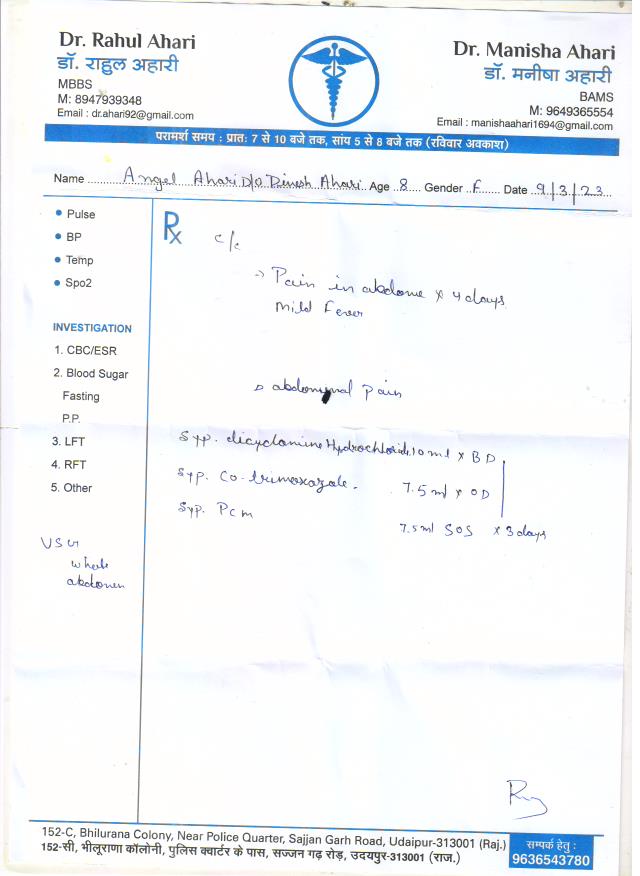 Dr. Rahul Ahari
डॉ. राहुल अहारी
MBBS
M: 8947939348
Email : dr.ahari92@gmail.com
Dr. Manisha Ahari
डॉ. मनीषा अहारी
BAMS
M: 9649365554
Email : manishaahari1694@gmail.com
परामर्श समय : प्रातः 7 से 10 बजे तक, सांय 5 से 8 बजे तक (रविवार अवकाश)
Name Angel Ahari D/O Dinesh Ahari Age 8 Gender F Date 9/3/23
Pulse
BP
Temp
Spo2
INVESTIGATION
1. CBC/ESR
2. Blood Sugar
Fasting
P.P.
3. LFT
4. RFT
5. Other
USG
whole
abdomen
Rx c/c
→ Pain in abdome x 4 days
Mild Fever
abdominal pain
Syp. dicyclomine Hydrochloride 10 ml x BD
Syp. Co-trimoxazole. 7.5 ml x OD
Syp. Pcm 7.5 ml SOS x 3 days
152-C, Bhilurana Colony, Near Police Quarter, Sajjan Garh Road, Udaipur-313001 (Raj.)
152-सी, भीलूराणा कॉलोनी, पुलिस क्वार्टर के पास, सज्जन गढ़ रोड़, उदयपुर-313001 (राज.)
सम्पर्क हेतु :
9636543780